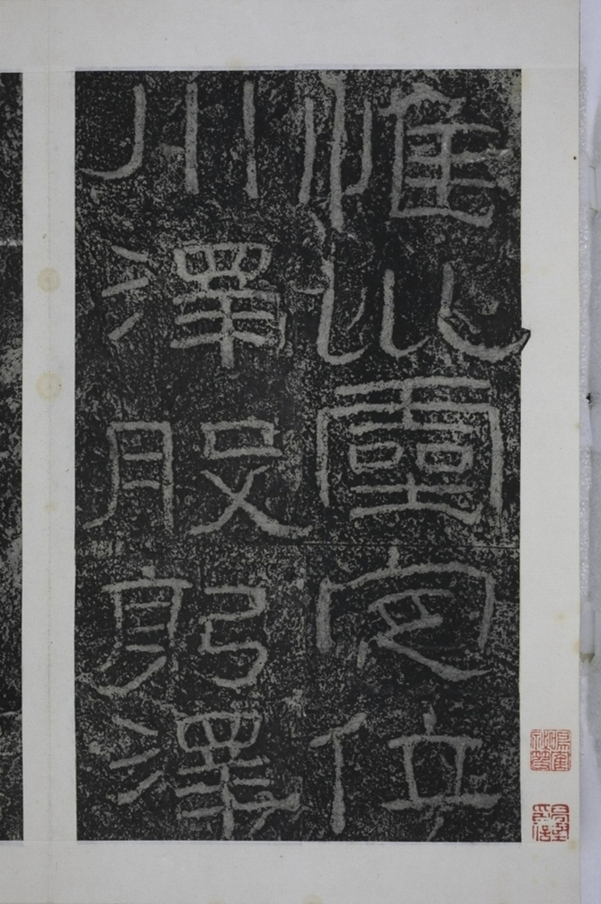 惟巛靈定位
川澤股躬澤